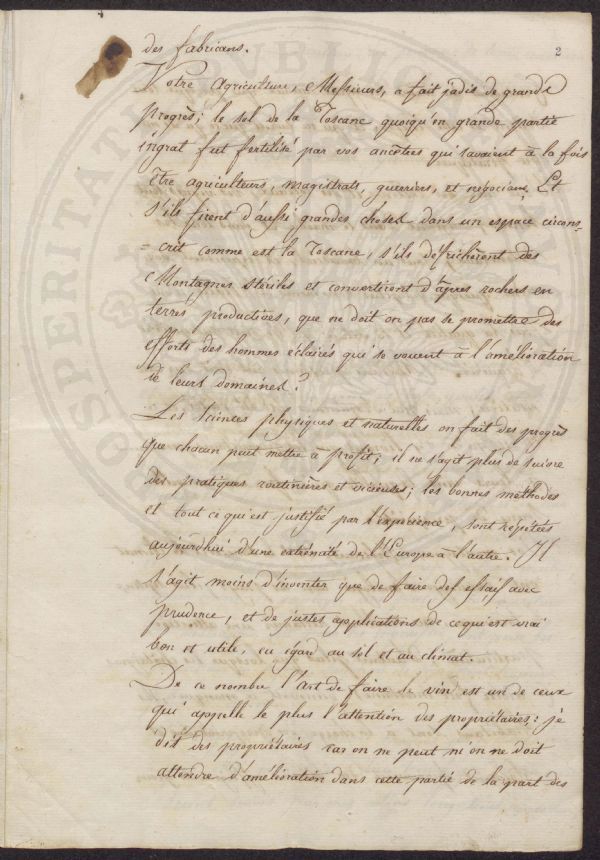 2
des fabricans.
Votre Agriculture, Messieurs, a fait jadis de grands
progrès; le sol de la Toscane quoiqu'en grande partie
ingrat fut fertilisé par vos ancêtres qui savaient à la fois
être agriculteurs, magistrats, guerriers, et négocians. Et
s'ils firent d'aussi grandes choses dans un espace circons=
=crit comme est la Toscane, s'ils défrichèrent des
Montagnes stériles et convertirent d'âpres rochers en
terres productives, que ne doit on pas se promettre des
efforts des hommes éclairés qui se vouent à l'amélioration
de leurs domaines?
Les Sciences physiques et naturelles on fait des progrès
que chacun peut mettre à profit; il ne s'agit plus de suivre
des pratiques routinières et vicieuses; les bonnes méthodes
et tout ce qui est justifié par l'expérience, sont répétées
aujourdhui d'une extrémité de l'Europe à l'autre. Il
s'agit moins d'inventer que de faire des essais avec
prudence, et de justes applications de ce qui est vrai
bon et utile, eu égard au sol et au climat.
De ce nombre l'art de faire le vin est un de ceux
qui appelle le plus l'attention des propriétaires: je
dis des propriétaires car on ne peut ni on ne doit
attendre d'amélioration dans cette partie de la part des
PROSPERITATI PUBLICAE